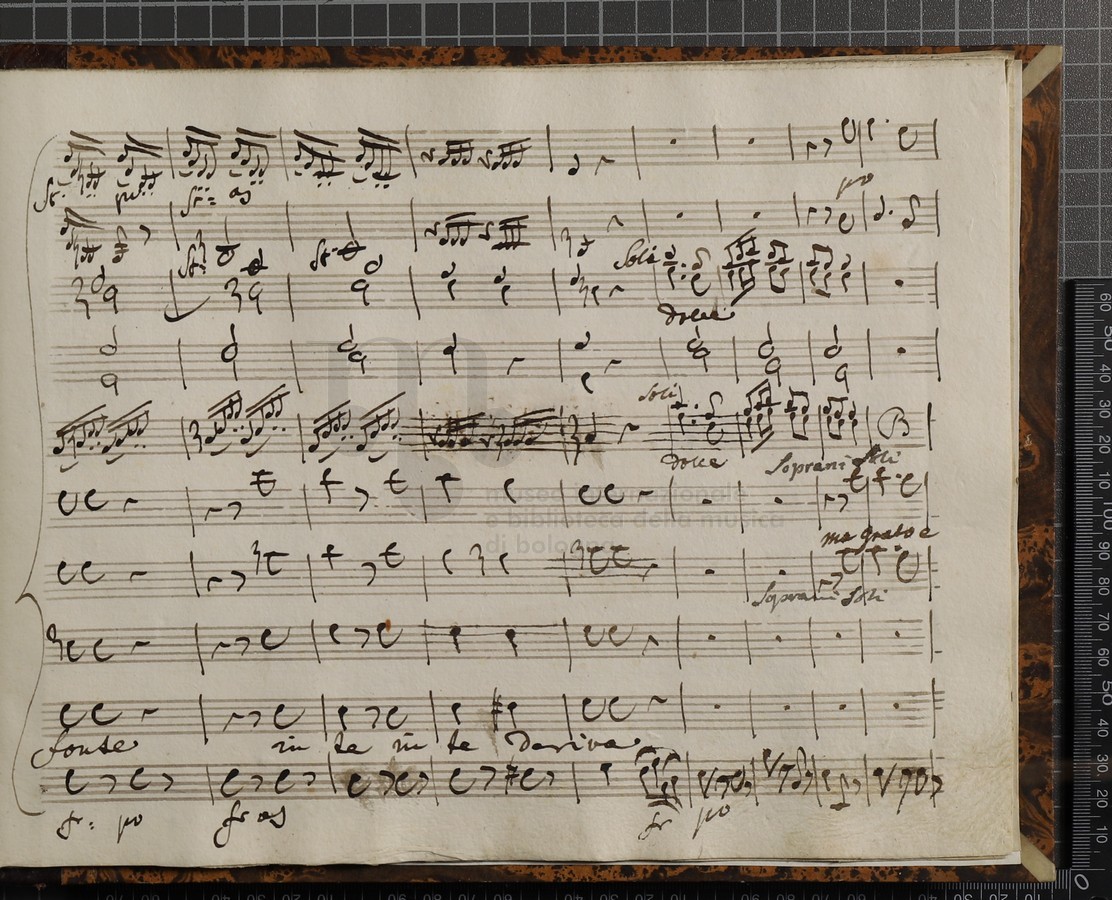 po
Soli
dolce
Soli
dolce
Soprani Soli
museo internazionale
e biblioteca della musica
di bologna
ma grato e
Soprani Soli
fonte in te in te Deriva
fr: po fr as fr po
60 50 40 30 20 10 100 90 80 70 60 50 40 30 20 10 0